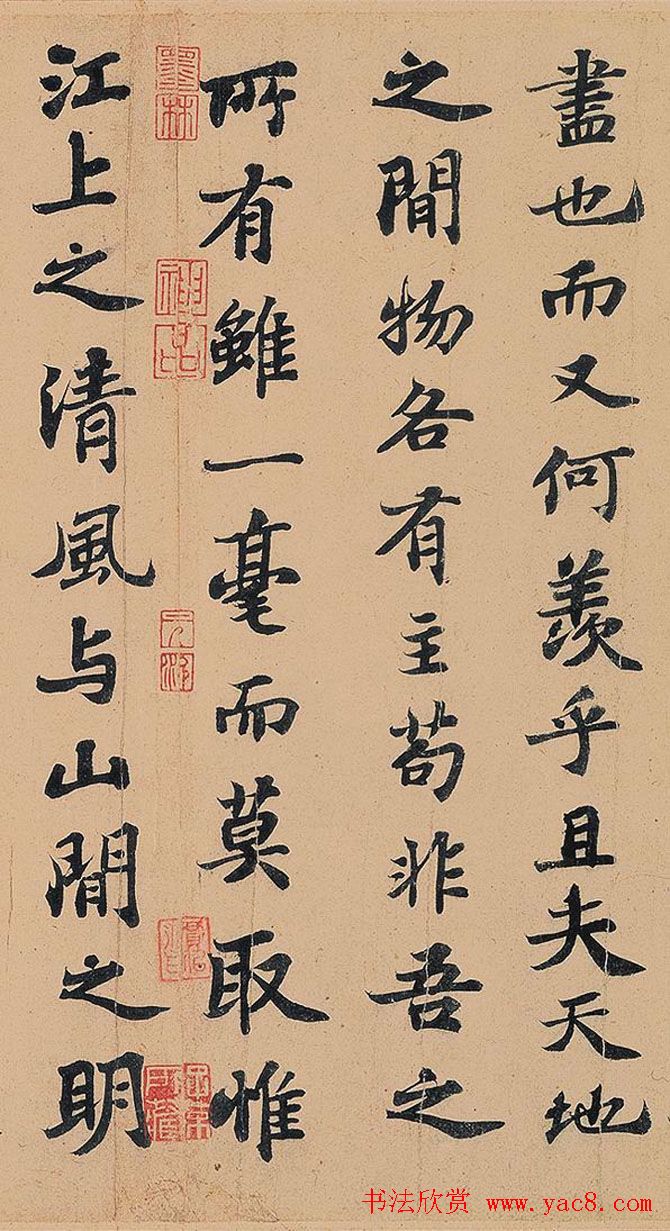 盡也而又何羨乎且夫天地
之間物各有主苟非吾之
所有雖一毫而莫取惟
江上之清風与山間之明
墨林
神品
子孫
書法欣賞 www.yac8.com